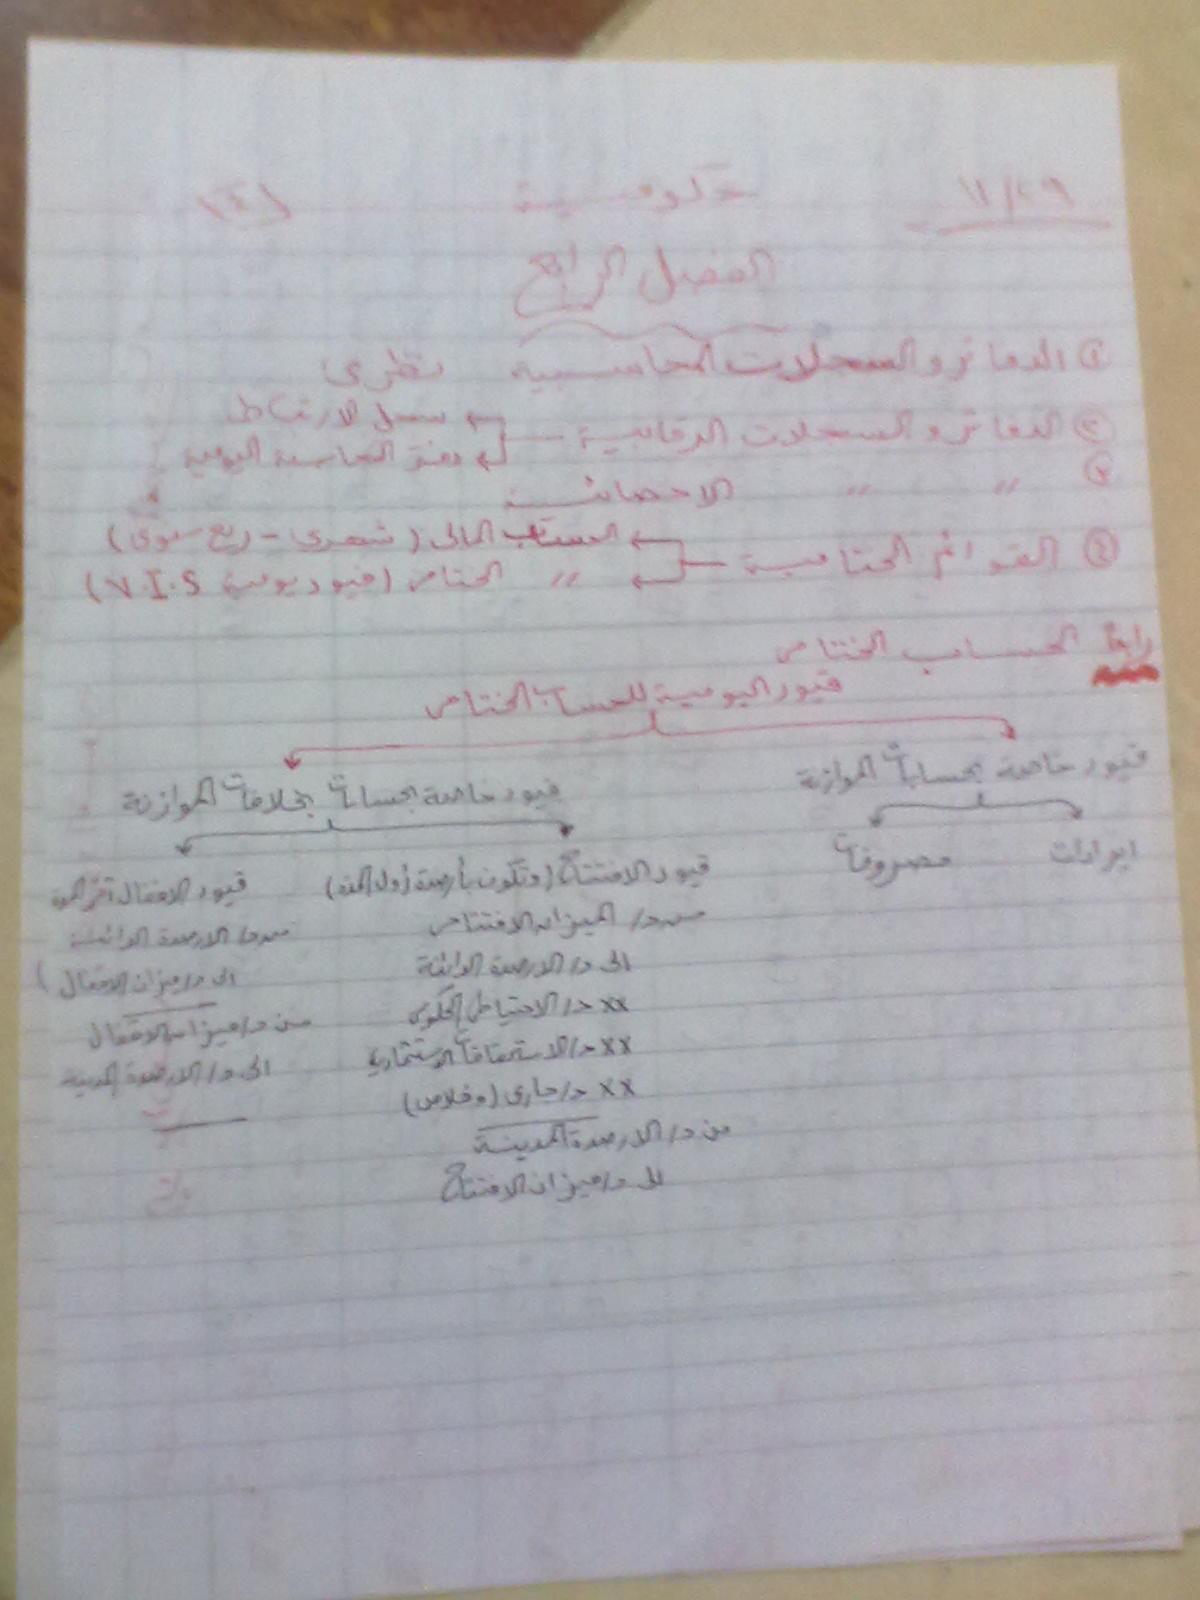 ١١/٢٩ حكومية (٤١)
الفصل الرابع
① الدفاتر و السجلات المحاسبيه نظرى
② الدفاتر و السجلات الرقابية
سجل الارتباط
دفتر الحاسبة اليومية
③ " " الاحصائية
④ القوائم الختامية
الحساب المالى (شهرى - ربع سنوى)
" الختامى (قيود يومية V.I.S)
رابعا الحساب الختامى
قيود اليومية للحساب الختامى
قيود خاصة بحسابات الموازنة
ايرادات مصروفات
قيود خاصة بحسابات بخلافات الموازنة
قيود الافتتاح (وتكون بأرصدة أول المدة)
من ح/ الميزان الافتتاحى
الى ح/ الارصدة الدائنة
xx ح/ الاحتياطى الحكومى
xx ح/ الاستحقاقات الاستثمارية
xx ح/ جارى ( )
من ح/ الارصدة المدينة
الى ح/ ميزان الافتتاح
قيود الاقفال آخر المدة
من ح/ الارصدة الدائنة
الى ح/ ميزان الاقفال
من ح/ ميزان الاقفال
الى ح/ الارصدة المدينة